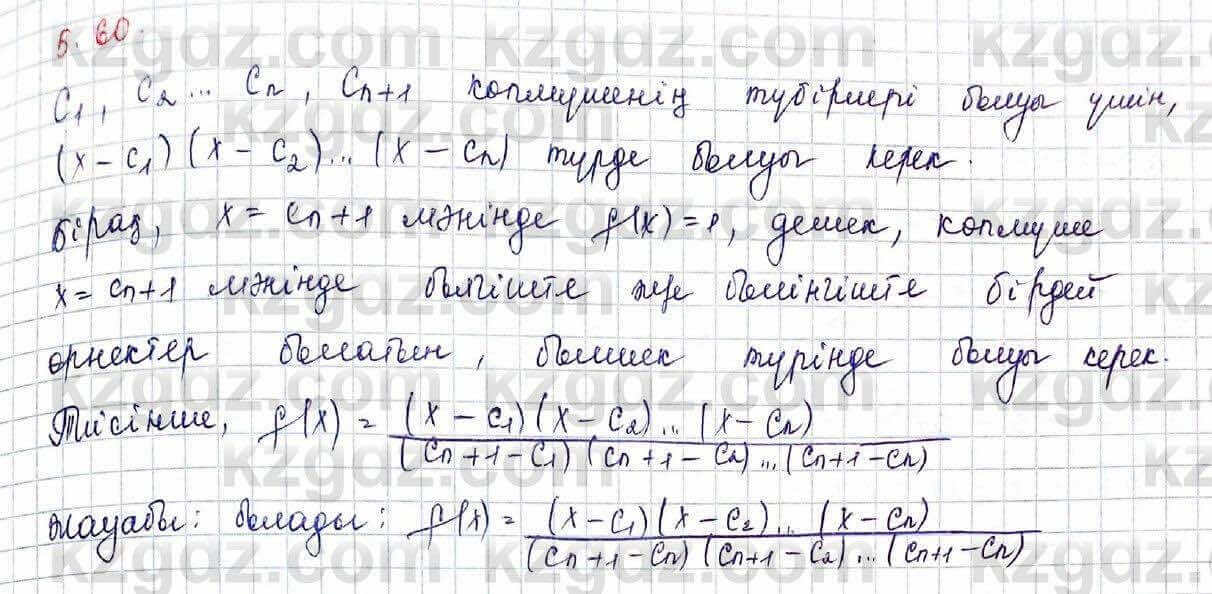 5.60.
C₁, C₂ ... Cₙ, Cₙ₊₁ көпмүшенің түбірлері болуы үшін,
(x – c₁)(x – c₂)...(x – cₙ) түрде болуы керек.
бірақ, x = cₙ+1 мәнінде f(x)=1, демек, көпмүше
x = cₙ+1 мәнінде бөлгіште және бөлінгіште бірдей
өрнектер болатын, бөлшек түрінде болуы керек.
Тиісінше, f(x) = (x – c₁)(x – c₂)...(x – cₙ) / (cₙ+1–c₁)(cₙ+1–c₂)...(cₙ+1–cₙ)
жауабы: болады: f(x) = (x–c₁)(x–c₂)...(x–cₙ) / (cₙ+1–cₙ)(cₙ+1–c₂)...(cₙ+1–cₙ)
kzgdz.com